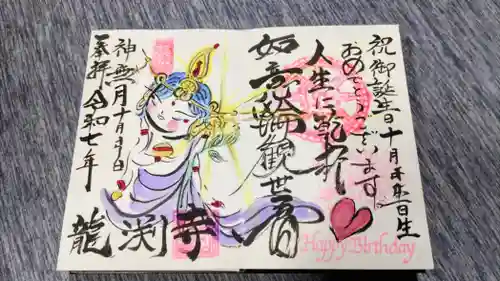 祝御誕生日十月
おめでとうございます
人生に乾杯
如意輪観世音
神無月十月
奉拝 令和七年
龍渕寺
Happy Birthday